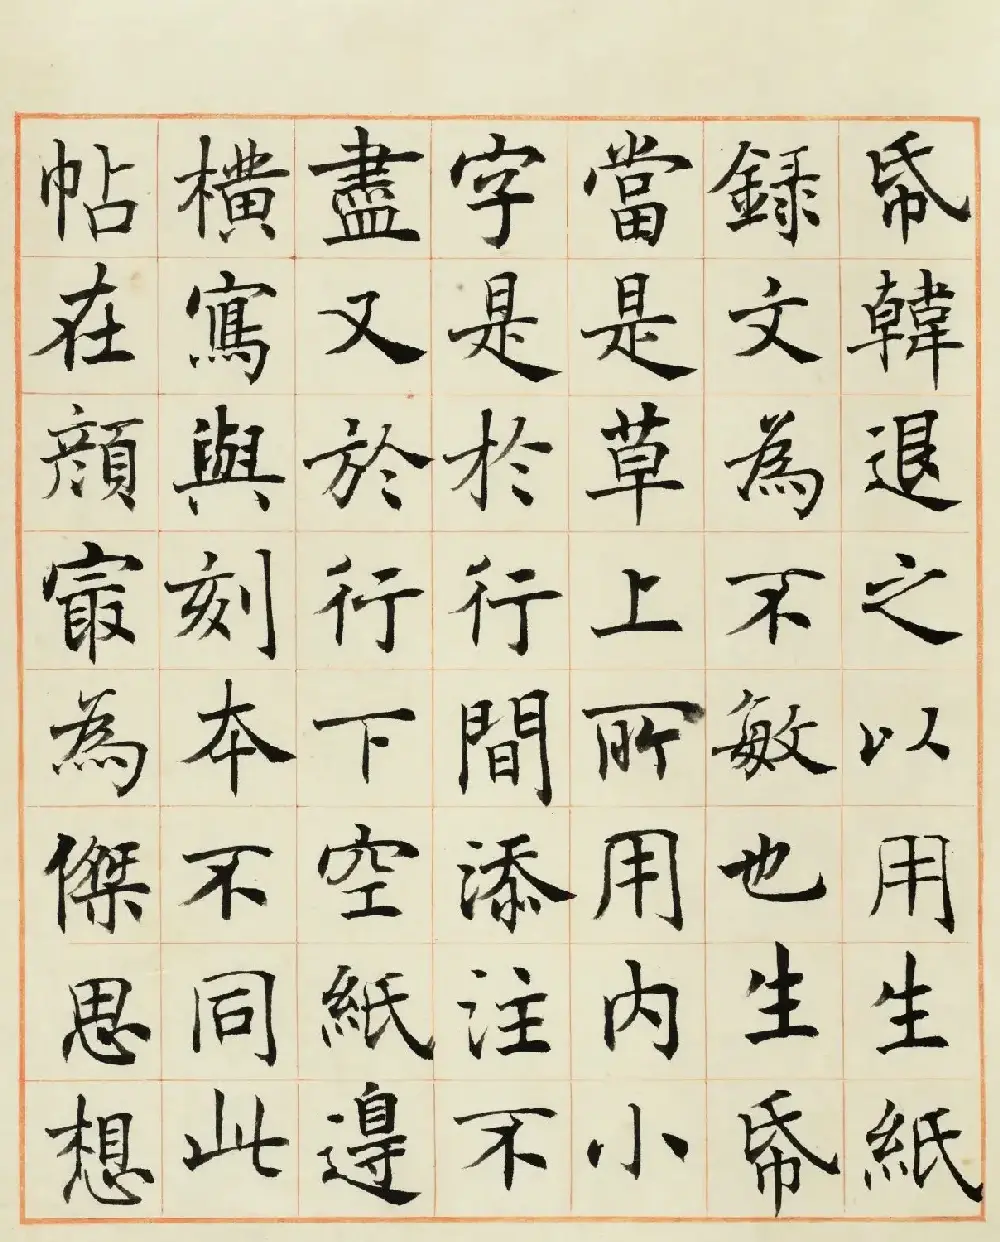 帋韓退之以用生紙
録文為不敏也生帋
當是草上所用内小
字是於行間添注不
盡又於行下空紙邊
橫寫與刻本不同此
帖在顔寂為傑思想